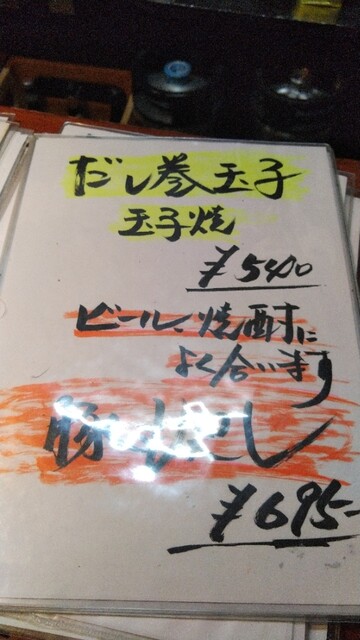 だし巻玉子
玉子焼
¥540
ビール、焼酎に
よく合います
豚
し
¥695-